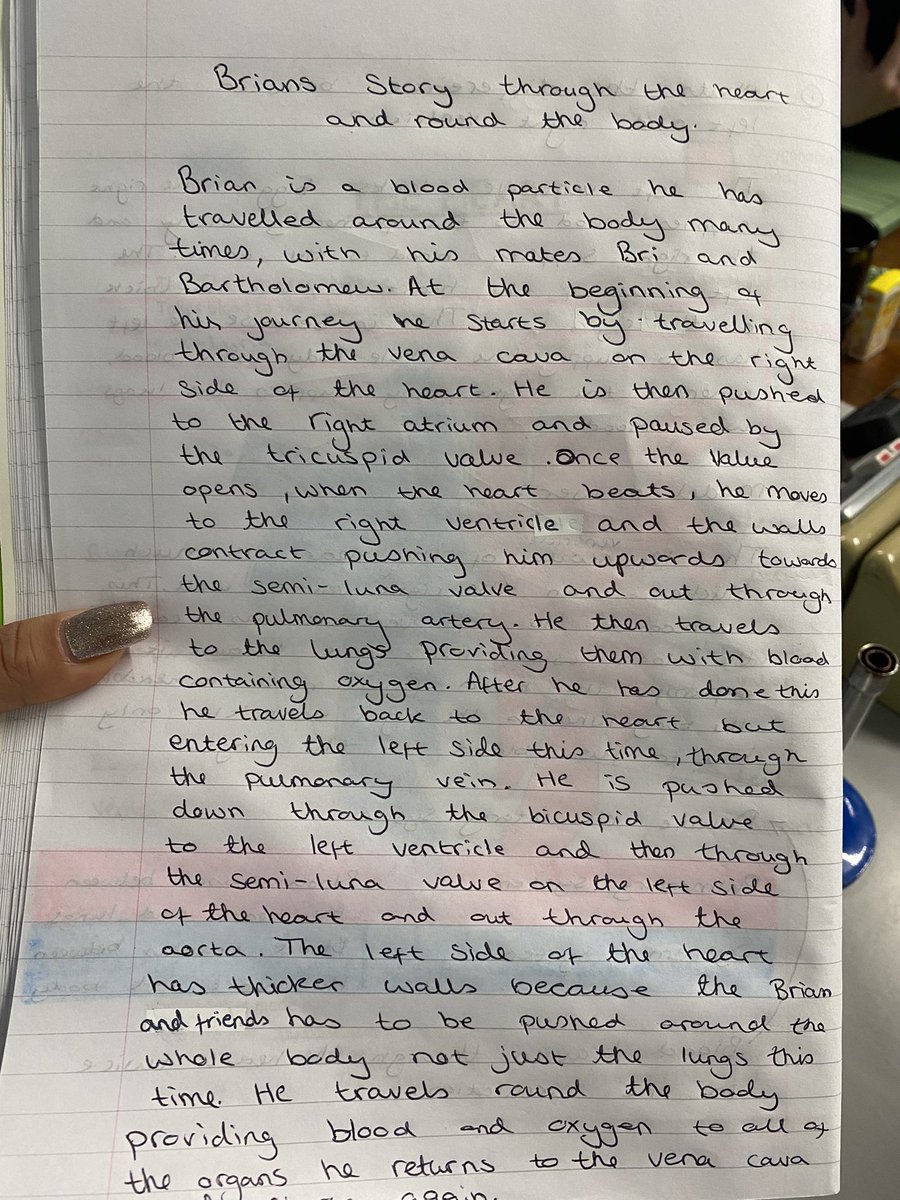 Brians Story through the heart
and round the body.
Brian is a blood particle he has
travelled around the body many
times, with his mates Bri and
Bartholomew. At the beginning of
his journey he starts by travelling
through the vena cava on the right
side of the heart. He is then pushed
to the right atrium and paused by
the tricuspid valve. Once the valve
opens, when the heart beats, he moves
to the right ventricle and the walls
contract pushing him upwards towards
the semi-luna valve and out through
the pulmonary artery. He then travels
to the lungs providing them with blood
containing oxygen. After he has done this
he travels back to the heart but
entering the left side this time, through
the pulmonary vein. He is pushed
down through the bicuspid valve
to the left ventricle and then through
the semi-luna valve on the left side
of the heart and out through the
aorta. The left side of the heart
has thicker walls because the Brian
and friends has to be pushed around the
whole body not just the lungs this
time. He travels round the body
providing blood and oxygen to all of
the organs he returns to the vena cava
again.